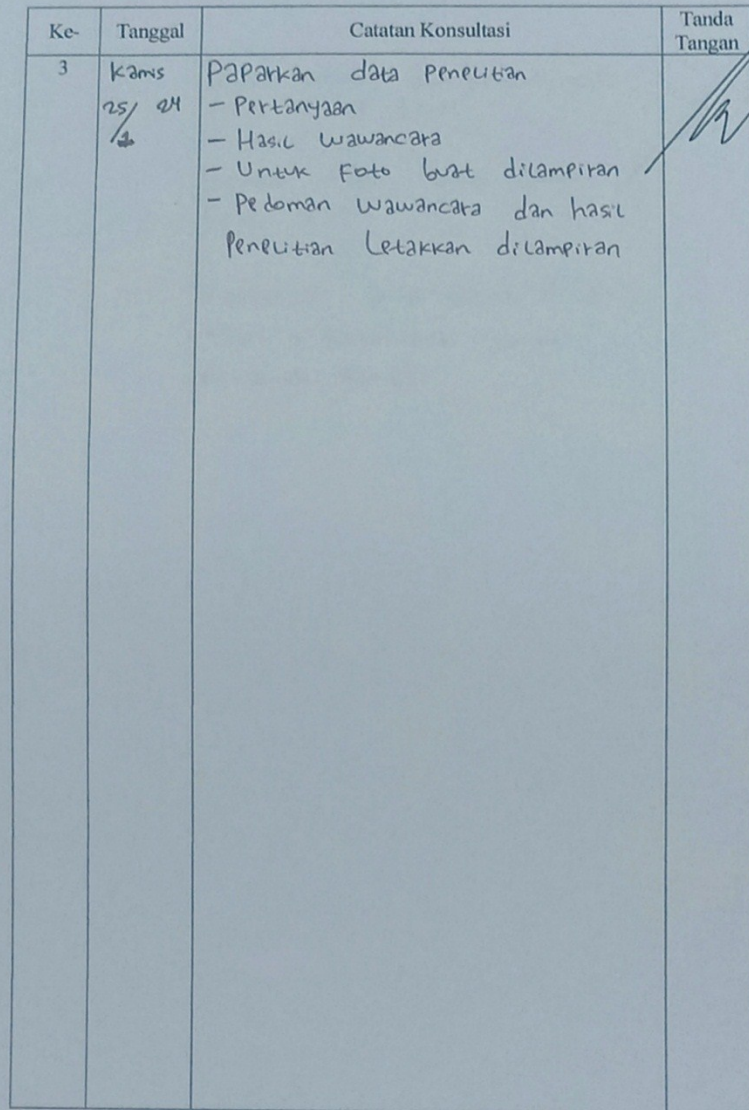 Ke- Tanggal Catatan Konsultasi Tanda Tangan
3 Kamis Paparkan data Penelitian
25/1 24 - Pertanyaan
- Hasil wawancara
- Untuk Foto buat dilampiran
- Pedoman wawancara dan hasil
Penelitian Letakkan dilampiran